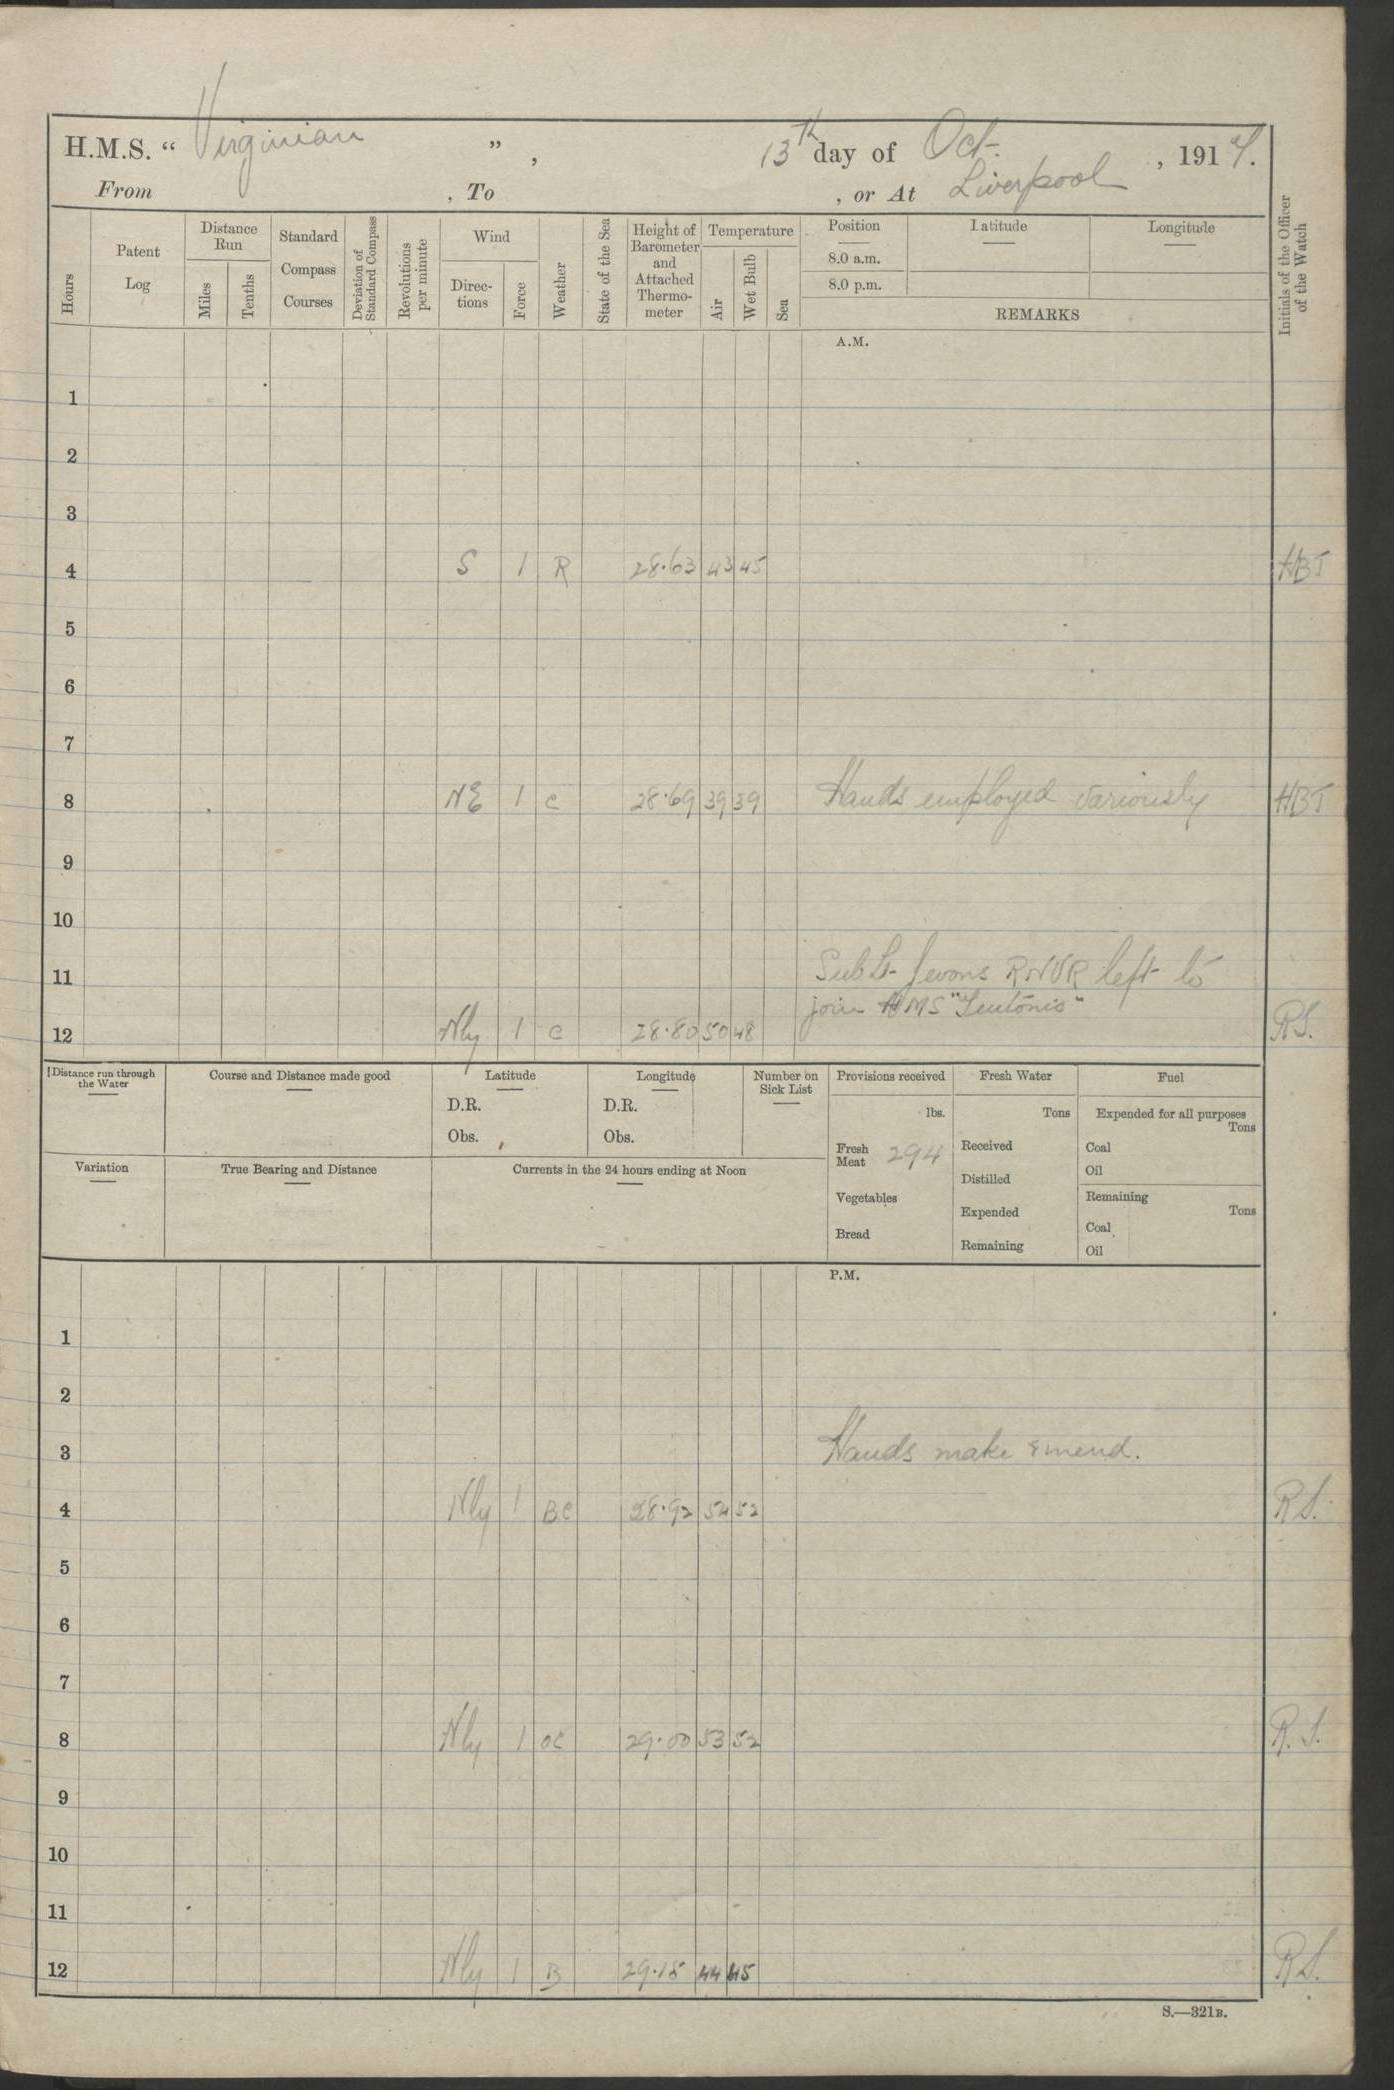 H.M.S. “ Virginian ” , 13th day of Oct. , 1917.
From , To , or At Liverpool
Hours
Patent Log
Distance Run
Miles
Tenths
Standard Compass Courses
Deviation of Standard Compass
Revolutions per minute
Wind
Direc-tions
Force
Weather
State of the Sea
Height of Barometer and Attached Thermo-meter
Temperature
Air
Wet Bulb
Sea
Position Latitude Longitude
8.0 a.m.
8.0 p.m.
REMARKS
Initials of the Officer of the Watch
A.M.
1
2
3
4 S 1 R 28.63 43 45 HBT
5
6
7
8 NE 1 C 28.69 39 39 Hands employed variously HBT
9
10
11 Sub Lt Jevons RNVR left to
join HMS "Teutonic"
12 Nly 1 C 28.80 50 48 RS.
Distance run through the Water
Course and Distance made good
Latitude
D.R.
Obs.
Longitude
D.R.
Obs.
Number on Sick List
Provisions received
lbs.
Fresh Meat 294
Vegetables
Bread
Fresh Water
Tons
Received
Distilled
Expended
Remaining
Fuel
Expended for all purposes
Tons
Coal
Oil
Remaining
Tons
Coal
Oil
Variation
True Bearing and Distance
Currents in the 24 hours ending at Noon
P.M.
1
2
3 Hands make & mend.
4 Nly 1 BC 28.92 54 52 RS.
5
6
7
8 Nly 1 OC 29.00 53 52 R.S.
9
10
11
12 Nly 1 B 29.15 44 45 RS.
S.—321B.